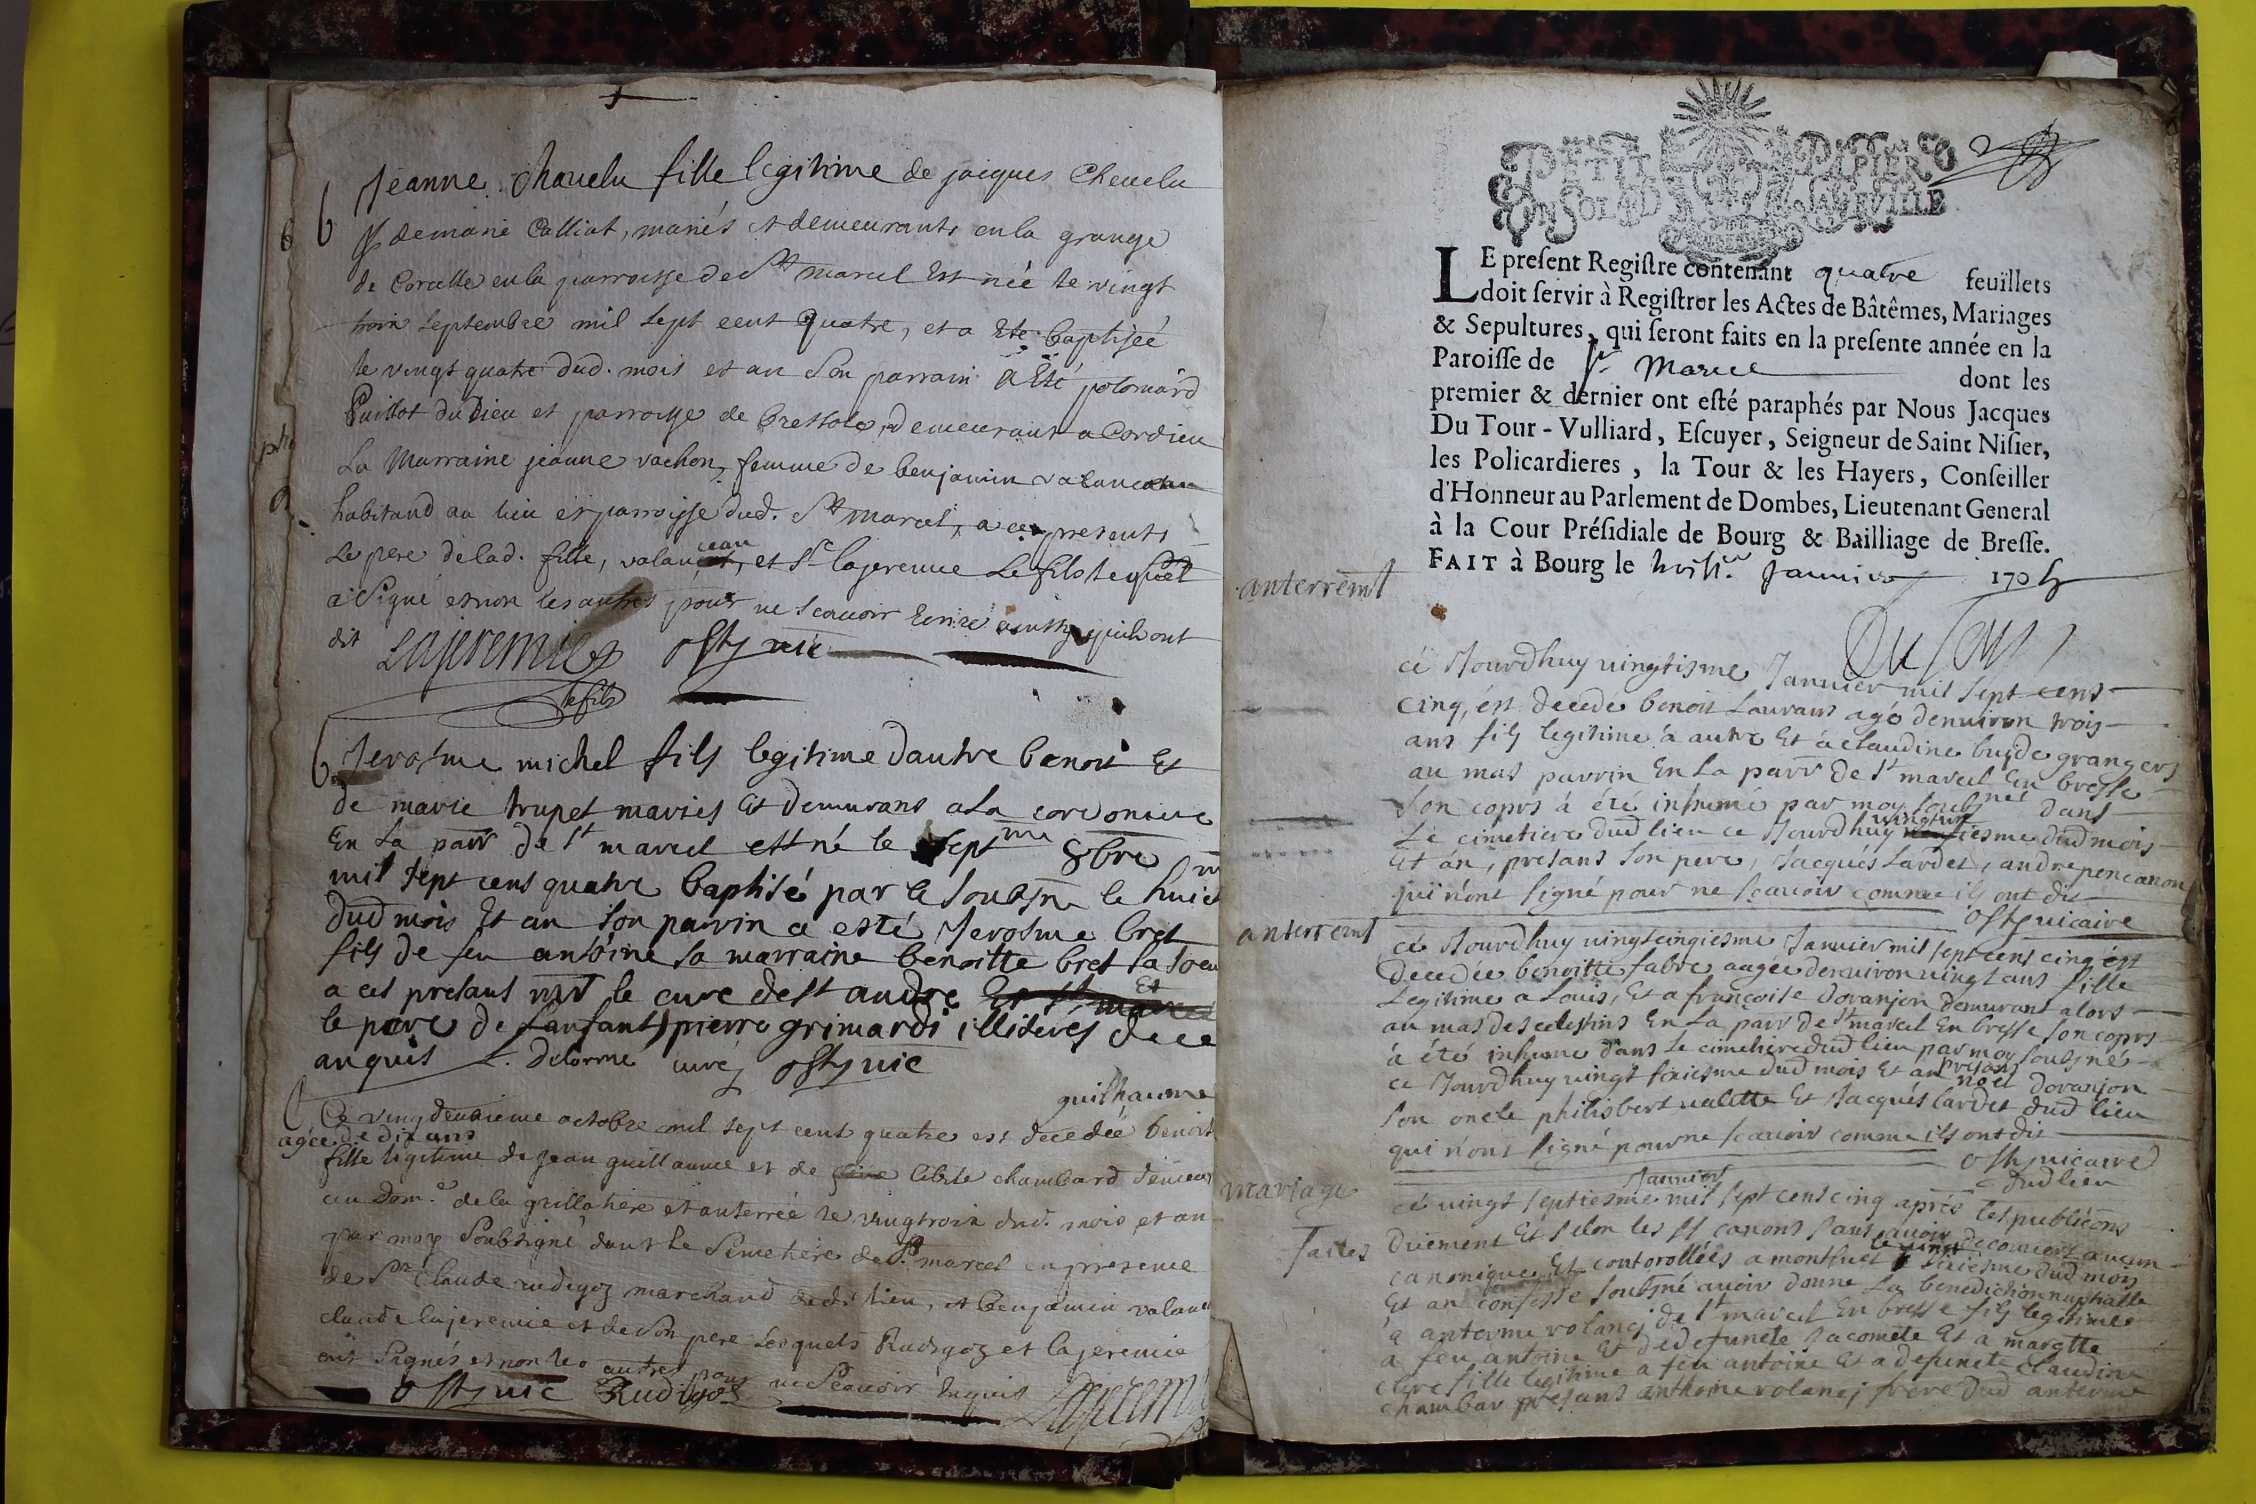 6 Jeanne Chavelu fille legitime de jaiques Chevelu
6 & demarie Calliat, mariés et demeurants en la grange
de Corcelle en la parroisse de St marcel Est née le vingt
trois septembre mil sept cent quatre, et a Eté baptisée
le vingt quatre dud. mois et an Son parrain a Eté polomard
du Lieu et parroisse de Bressole, demeurant a Cordieu
La Marraine jeanne vachon, femme de benjamin
habitand au lieu et parroisse dud. St marcel, a ce presents
Le pere de lad. fille, valanceau, et Sr lajeremie Le fils lequel
a Signé et non les autres pour ne Scavoir Ecrire ainsy quils ont
dit Lajeremie ost vic
le fils
6 Jerosme michel fils legitime dautre benoit Et
de marie trupet mariés Et demurans a La cordoniere
En La parr de st marcel est né le septme 8bre
mil sept cens quatre baptisé par le soubsné le huict
dud mois Et an son parrin a esté Jerosme bret
fils de feu antoine sa marraine benoitte bret sa soeu
a ces presans mr le curé de st andre Et
le pere de Lanfant pierre grimardi illiterés de ce
anquis L. Delorme curé ost vic
guilhaume
Ce vingdeuxieme octobre mil sept cent quatre est decedée benoit
agée de dix ans
fille legitime de Jean guillaume et de chambard demeur
au dom.e de la grillatiere et anterrée le vingtrois dud. mois et an
par moy Soubsigné dans le Semetiere de St. marcel en presence
de Sr Claude rudigoz marchand dud. lieu, et benjamin valance
claude lajeremie et de Son pere Lesquels Rudigoz et lajeremie
ont Signés et non les autres pour ne Scavoir Enquis Lajeremi
ost vic Rudigoz
PETIT PAPIER
UN SOL LA FEUILLE
2
LE present Registre contenant quatre feuillets
doit servir à Registrer les Actes de Bâtêmes, Mariages
& Sepultures, qui seront faits en la presente année en la
Paroisse de St. Marcel dont les
premier & dernier ont esté paraphés par Nous Jacques
Du Tour-Vulliard, Escuyer, Seigneur de Saint Nisier,
les Policardieres, la Tour & les Hayers, Conseiller
d'Honneur au Parlement de Dombes, Lieutenant General
à la Cour Présidiale de Bourg & Bailliage de Bresse.
FAIT à Bourg le Janvier 1705
anterremt
Du Tour
cé Jourdhuy vingtisme Janvier mil sept cens
cinq, ést decedé benoit Laurans agé denuiron trois
ans fils legitime à autre Et à claudine buide grangers
au mas purrin En La parr de st marcel En bresse
son coprs à été inhumé par moy soubsné dans
Le cimetiere dud lieu ce Jourdhuy vingtun iesme dud mois
Et an, presans son pere, Jacqués Lardet, andre pencanon
qui n'ont signé pour ne scavoir comme ils ont dit
ost vicaire
anterremt
cé Jourdhuy vingtcinqiesme Janvier mil sept cens cinq ést
decedée benoitte fabre augée denuiron vingt ans fille
Legitime a Louis, Et a françoise doranjon demurant alors
au mas des celestins En La parr de st marcel En bresse son coprs
à été inhumé dans Le cimetiere dud lieu par moy soubsné
ce Jourdhuy vingt sixiesme dud mois Et an presans noel doranjon
son oncle philisbert valette Et Jacqués Lardet dud lieu
qui n'ont signé pour ne scavoir comme ils ont dit
ost vicaire
dud lieu
mariage
Janvier
cé vingt septiesme mil sept cent cinq aprés les publicons
faites
duement Et selon les ss canons sans avoir decouvert aucun
canonique Et controllées a montluel le vingt sixiesme dud mois
Et an confesse soubsné avoir donné La benediction nuptialle
a anterme rolanej de st marcel En bresse fils legitime
a feu antoine Et de defuncte Jacomete Et a margtte
clere fille legitime a feu antoine Et a defuncte claudine
chambar presans anthoine rolanej frere dud anterme